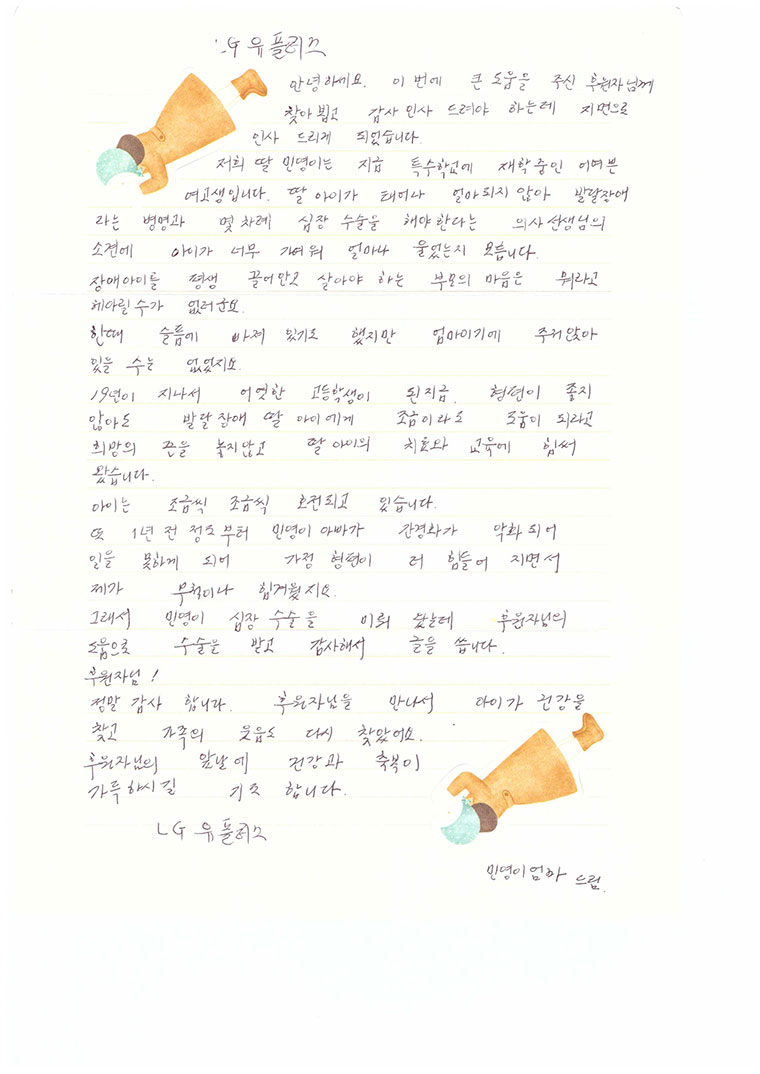 LG 유플러스
안녕하세요. 이번에 큰 도움을 주신 후원자님께
찾아 뵙고 감사 인사 드려야 하는데 지면으로
인사 드리게 되었습니다.
저희 딸 민영이는 지금 특수학교에 재학중인 어여쁜
여고생입니다. 딸 아이가 태어나 얼마되지 않아 발달장애
라는 병명과 몇 차례 심장 수술을 해야한다는 의사선생님의
소견에 아이가 너무 가여워 얼마나 울었는지 모릅니다.
장애아이를 평생 끌어안고 살아야 하는 부모의 마음은 뭐라고
헤아릴수가 없더군요.
한때 슬픔에 빠져 있기도 했지만 엄마이기에 주저앉아
있을 수는 없었지요.
19년이 지나서 어엿한 고등학생이 된지금. 형편이 좋지
않아도 발달장애 딸 아이에게 조금이라도 도움이 되라고
희망의 끈을 놓지않고 딸 아이의 치료와 교육에 힘써
왔습니다.
아이는 조금씩 조금씩 호전되고 있습니다.
또 1년 전 정도부터 민영이 아빠가 간경화가 악화되어
일을 못하게 되어 가정 형편이 더 힘들어 지면서
제가 무척이나 힘겨웠지요.
그래서 민영이 심장 수술을 미뤄 왔는데 후원자님의
도움으로 수술을 받고 감사해서 글을 씁니다.
후원자님!
정말 감사 합니다. 후원자님을 만나서 아이가 건강을
찾고 가족의 웃음도 다시 찾았어요.
후원자님의 앞날에 건강과 축복이
가득하시길 기도 합니다.
LG 유플러스
민영이엄마 드림.